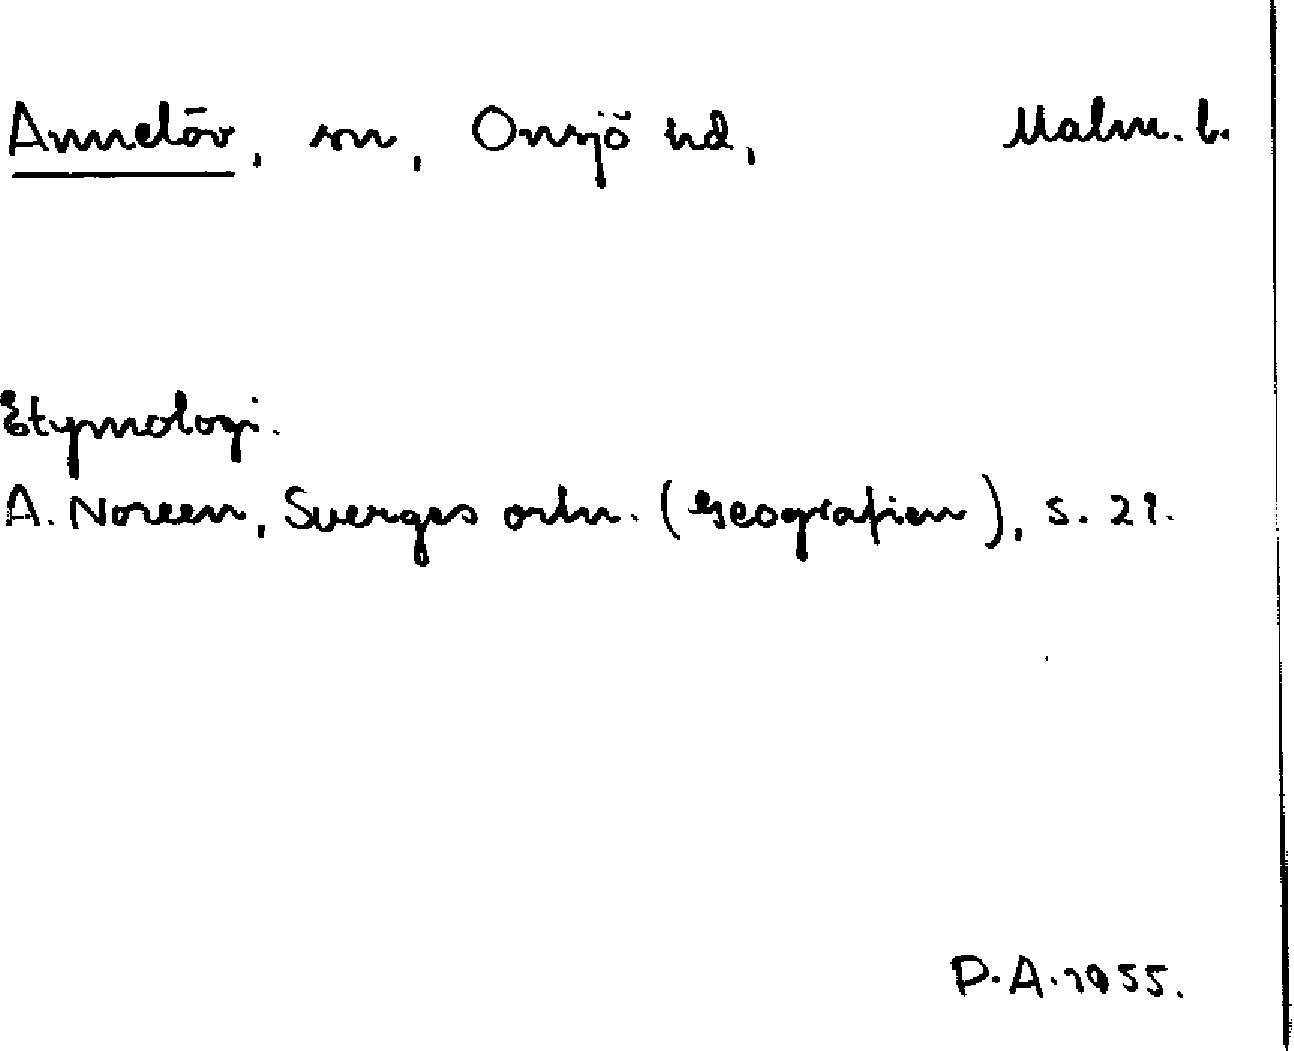 Annelöv, sn, Onsjö hd, Malm. l.
Etymologi.
A. Noreen, Sverges ortn. (Geografien), s. 21.
P.A. 1955.